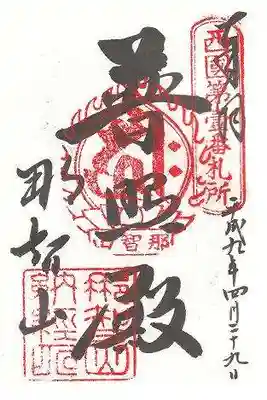 奉拝
西國第壹番札所
平成九年四月二十九日
普照殿
那智山
那智山